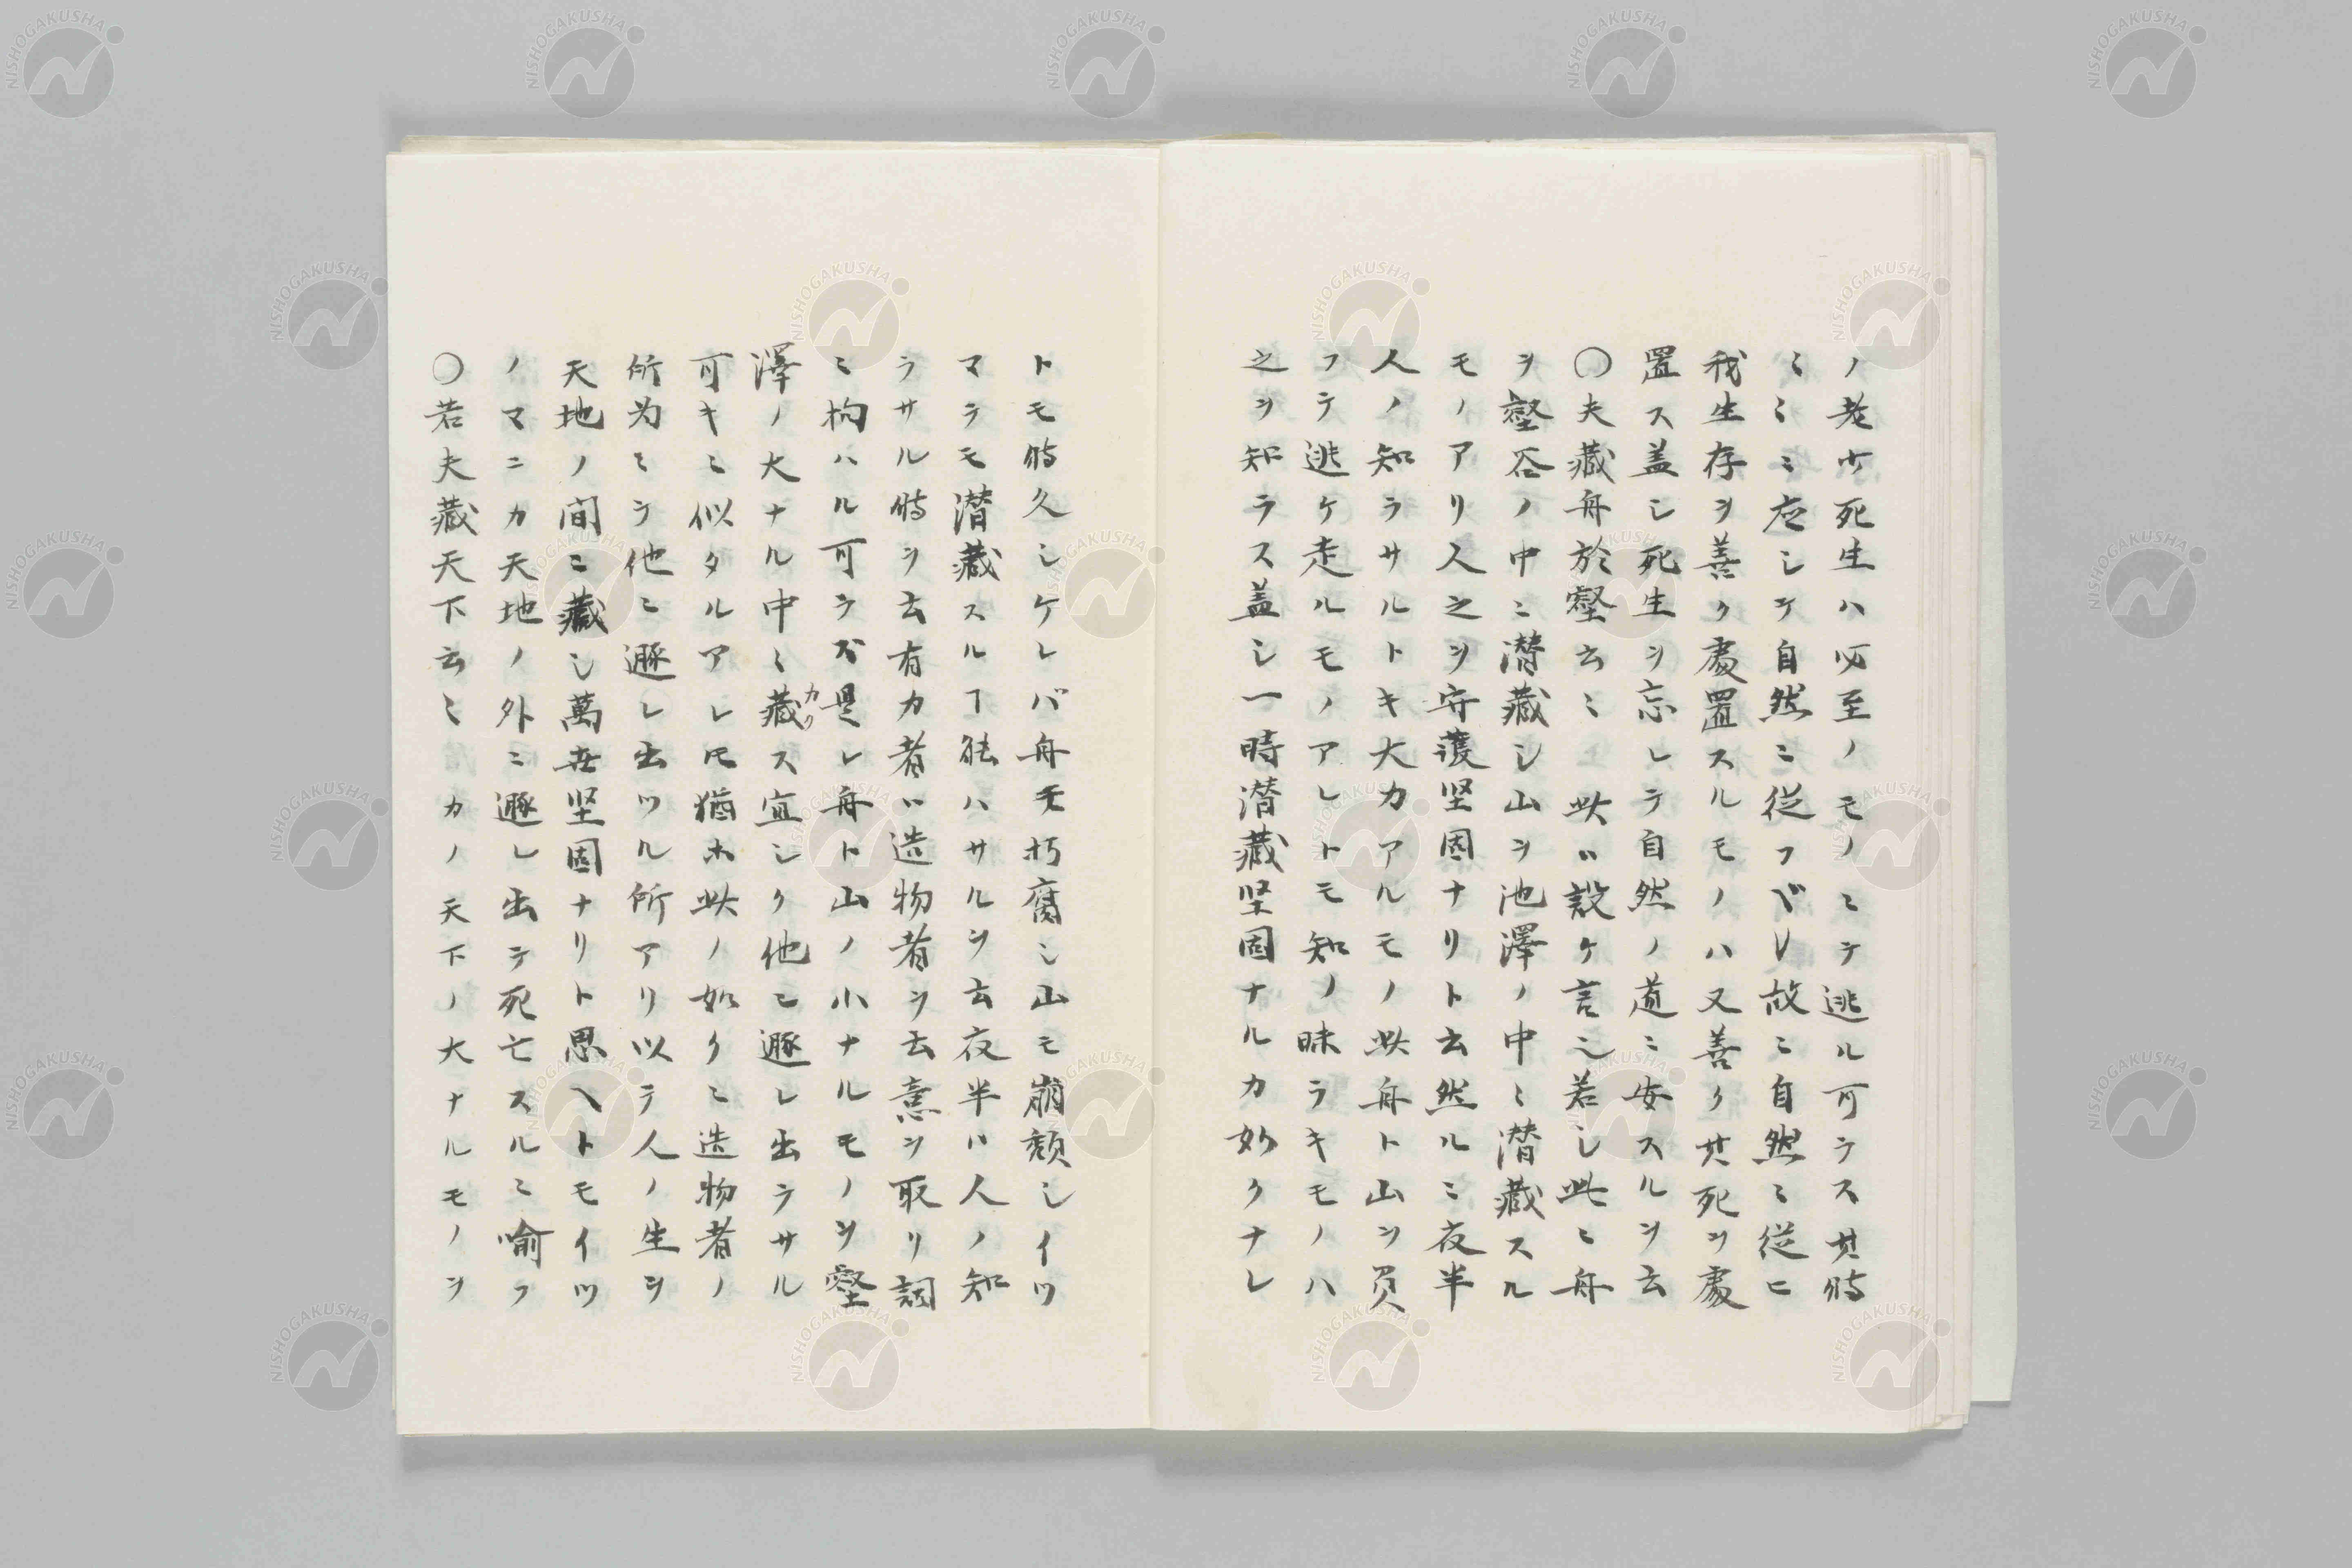 ノ老少死生ハ必至ノモノニテ逃ル可ラス其時
〻〻ニ应シテ自然ニ従フベシ故ニ自然ニ従ヒ
我生存ヲ善ク處置スルモノハ又善ク其死ヲ處
置ス盖シ死生ヲ忘レテ自然ノ道ニ安スルヲ云
〇夫藏舟於壑云〻 此ハ設ケ言ニ若シ此ニ舟
ヲ壑谷ノ中ニ潜藏シ山ヲ池澤ノ中ニ潜藏スル
モノアリ人之ヲ守護坚固ナリト云然ルニ夜半
人ノ知ラサルトキ大力アルモノ此舟ト山ヲ負
フテ逃ケ走ルモノアレトモ知ノ昧ラキモノハ
之ヲ知ラス盖シ一時潜藏坚固ナルカ妙クナレ
トモ時久シケレバ舟モ朽腐シ山モ崩頽シイツ
マテモ潜藏スルヿ能ハサルヲ云夜半ハ人ノ知
ラサル時ヲ云有力者ハ造物者ヲ云意ヲ取リ詞
ニ拘ハル可ラズ是レ舟ト山ノ小ナルモノヲ壑
澤ノ大ナル中ニ藏カクス宜シク他ニ遯レ出ラサル
可キニ似タルアレ𪜈猶ホ此ノ如クニ造物者ノ
所为ニテ他ニ遯レ出ツル所アリ以テ人ノ生ヲ
天地ノ間ニ藏シ萬世坚固ナリト思ヘトモイツ
ノマニカ天地ノ外ニ遯レ出テ死亡スルニ喻フ
〇若夫藏天下云〻 カノ天下ノ大ナルモノヲ
NISHOGAKUSHA